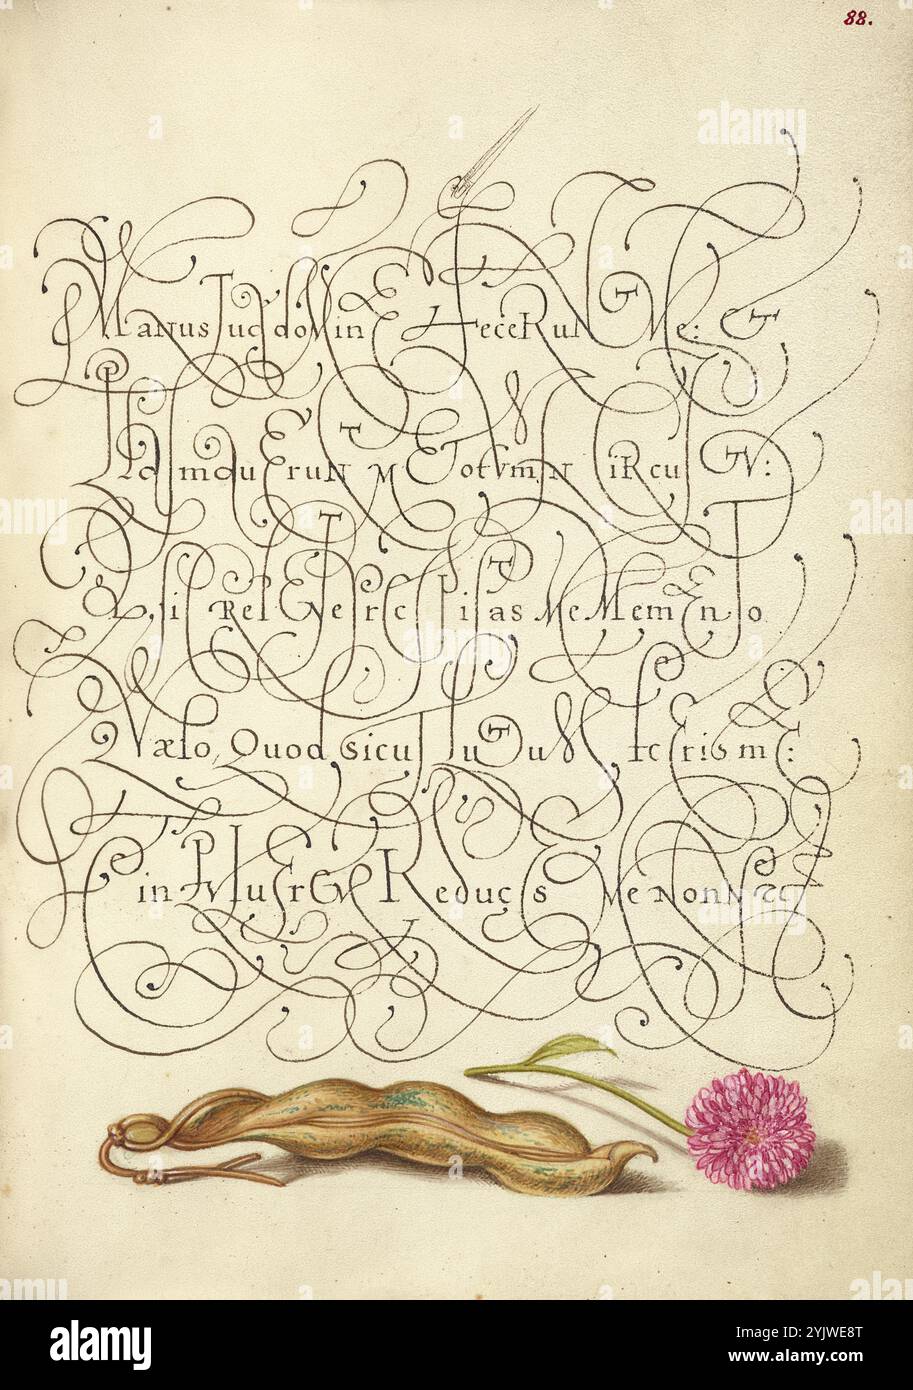 88.
Manus Tuę domine Fecerunt Me: Et
Plasmauerunt Me totum in circuitu:
& sic Repente precipitas Me Memento
Quæso, Quod sicut lutum feceris me:
Et in Puluerem Reduces Me Nonne &c
alamy
Image ID: 2YJWE8T
www.alamy.com